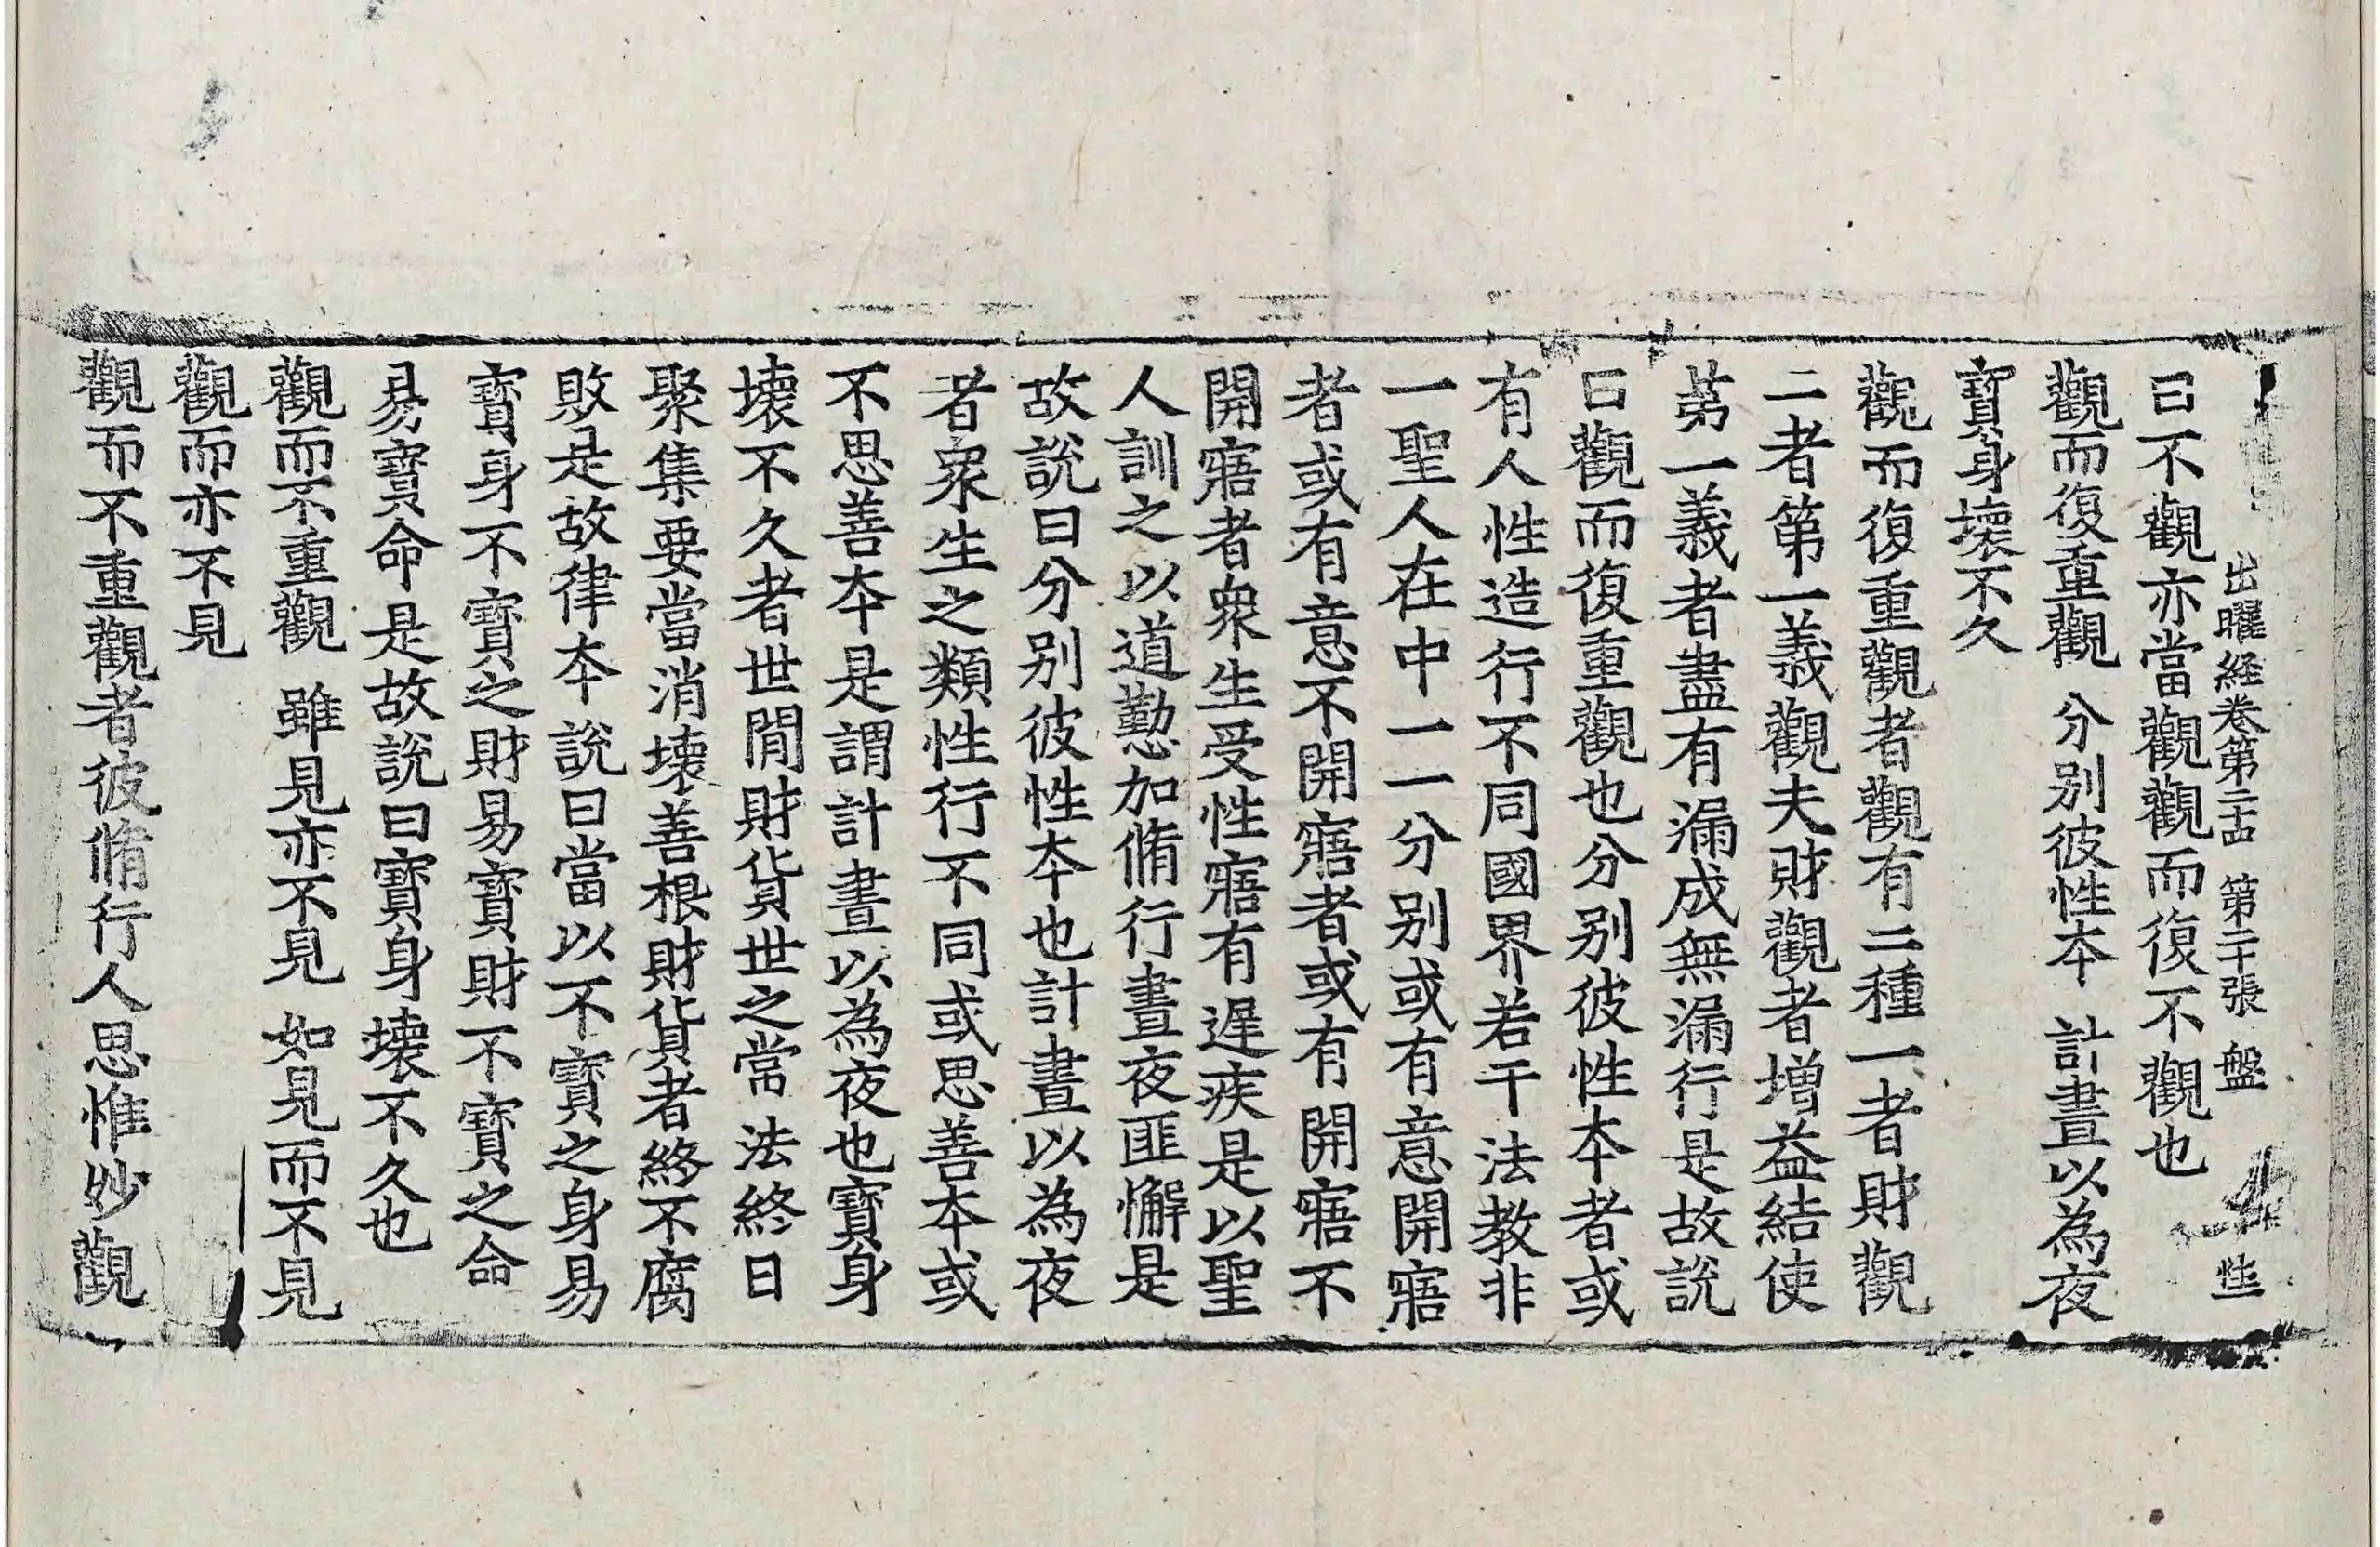 出曜経卷第二十四　第二十張　盤　性
曰不觀亦當觀觀而復不觀也
觀而復重觀　分别彼性夲　計晝以為夜
寶身壊不久
觀而復重觀者觀有二種一者財觀
二者第一義觀夫財觀者增益結使
苐一義者盡有漏成無漏行是故説
曰觀而復重觀也分别彼性夲者或
有人性造行不同國界若干法教非
一聖人在中一一分别或有意開寤
者或有意不開寤者或有開寤不
開寤者衆生受性寤有遲疾是以聖
人訓之以道懃加脩行晝夜匪懈是
故説曰分别彼性夲也計晝以為夜
者衆生之類性行不同或思善夲或
不思善夲是謂計晝以為夜也寶身
壊不久者世閒財貨世之常法終日
聚集要當消壊善根財貨者終不腐
敗是故律夲説曰當以不寶之身易
寶身不寶之財易寶財不寶之命
易寶命是故説曰寶身壊不久也
觀而不重觀　雖見亦不見　如見而不見
觀而亦不見
觀而不重觀者彼脩行人思惟妙觀